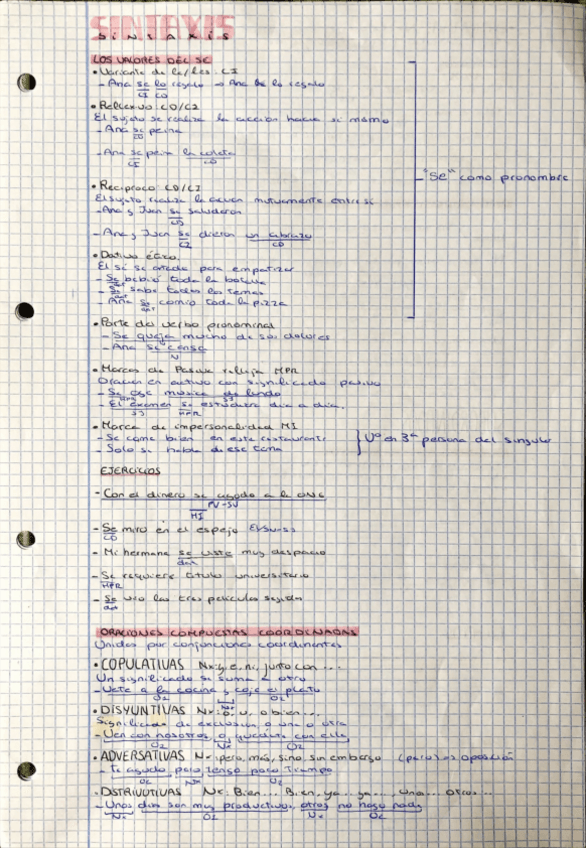 SINTAXIS
LOS VALORES DEL SE
• Variante de le/les: CI
- Ana se lo regalo → Ana le lo regalo
CI CD
• Reflexivo CD/CI
El sujeto realiza la acción hacia si mismo
- Ana se peina
CD
- Ana se peina la coleta
CI CD
"Se" como pronombre
• Reciproco CD/CI
El sujeto realiza la acción mutuamente entre si
- Ana y Juan se saludaron
CD
- Ana y Juan se dieron un abrazo
CI CD
• Dativo ético
El se se añade para empatizar
- Se bebió toda la botella
- Se sabe todos los temas
dat
- Ana se comió toda la pizza
dat
• Parte del verbo pronominal
- Se queja mucho de sus dolores
- Ana se cansa
N
• Marca de Pasiva refleja MPR
Oración en activa con significado pasivo
- Se oye música de fondo
- El examen se estudiará día a día.
SS MPR
• Marca de impersonalidad MI
- Se come bien en este restaurante
- Solo se habla de ese tema
Vº en 3ª persona del singular
EJERCICIOS
- Con el dinero se ayudo a la ONG
PV-SV
MI
- Se miró en el espejo
CD
- Mi hermana se viste muy despacio
dat
- Se requiere título universitario
MPR
- Se vio las tres películas seguidas
dat
ORACIONES COMPUESTAS COORDENADAS
Unidas por conjunciones coordinantes
• COPULATIVAS Nx: y, e, ni, junto con...
Un significado se suma a otro
- Vete a la cocina y coje el plato
O1 Nx O2
• DISYUNTIVAS Nx: o, u, o bien...
Significado de exclusión, o una o otra
- Ven con nosotros, o quedate con ella
O1 Nx O2
• ADVERSATIVAS Nx: pero, más, sino, sin embargo (pero) → oposición
- Te ayudo pero tengo poco tiempo
O1 Nx O2
• DSTRIVUTIVAS Nx: Bien... Bien, ya... ya..., unos... otros...
- Unos días son muy productivos, otros no hago nada
Nx O1 Nx O2